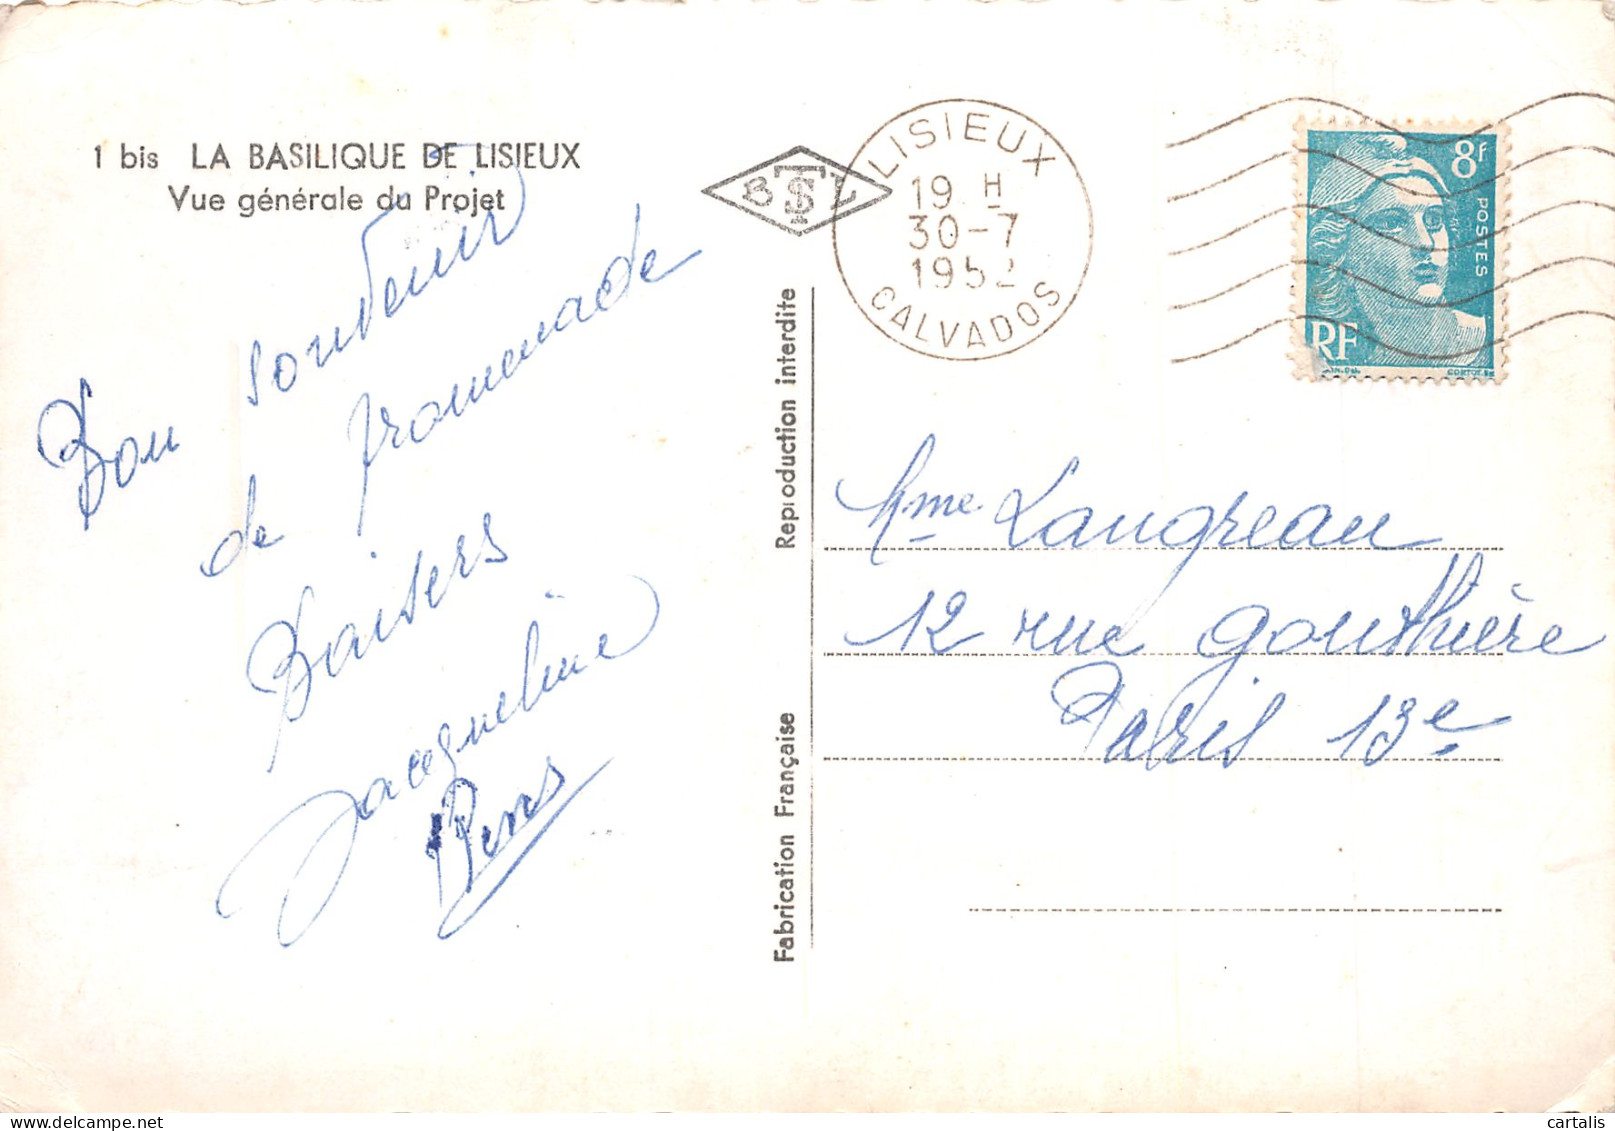 1 bis LA BASILIQUE DE LISIEUX
Vue générale du Projet
Bon souvenir
de promenade
Baisers
Jacqueline
B S L
LISIEUX
19 H
30-7
1952
CALVADOS
8f
POSTES
RF
CORTOT
Reproduction interdite
Fabrication Française
Mme Langreau
12 rue Gouthière
Paris 13e
cartalis